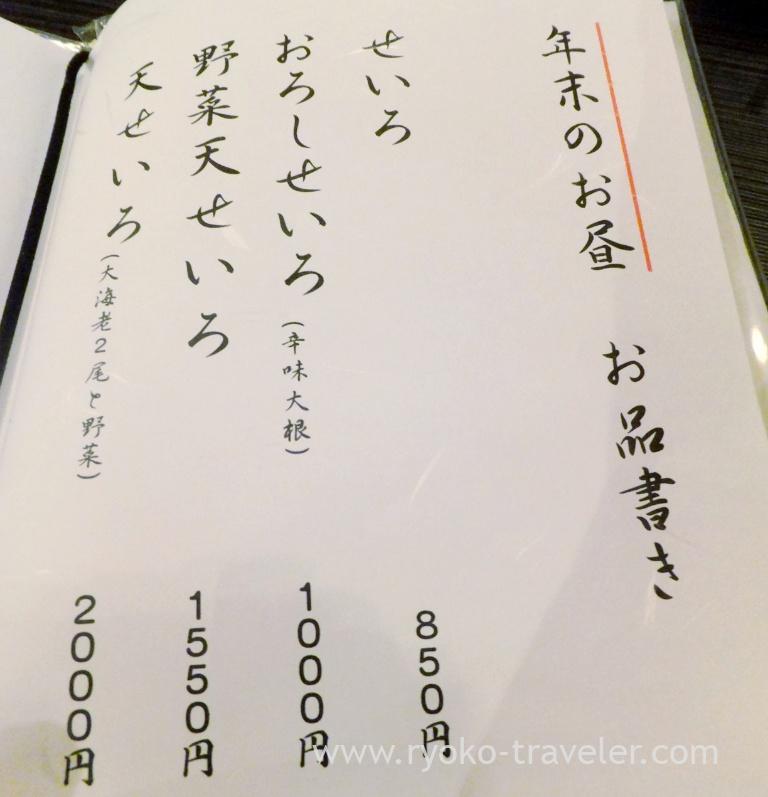 年末のお昼　お品書き
せいろ　850円
おろしせいろ（辛味大根）　1000円
野菜天せいろ　1550円
天せいろ（大海老2尾と野菜）　2000円
www.ryoko-traveler.com